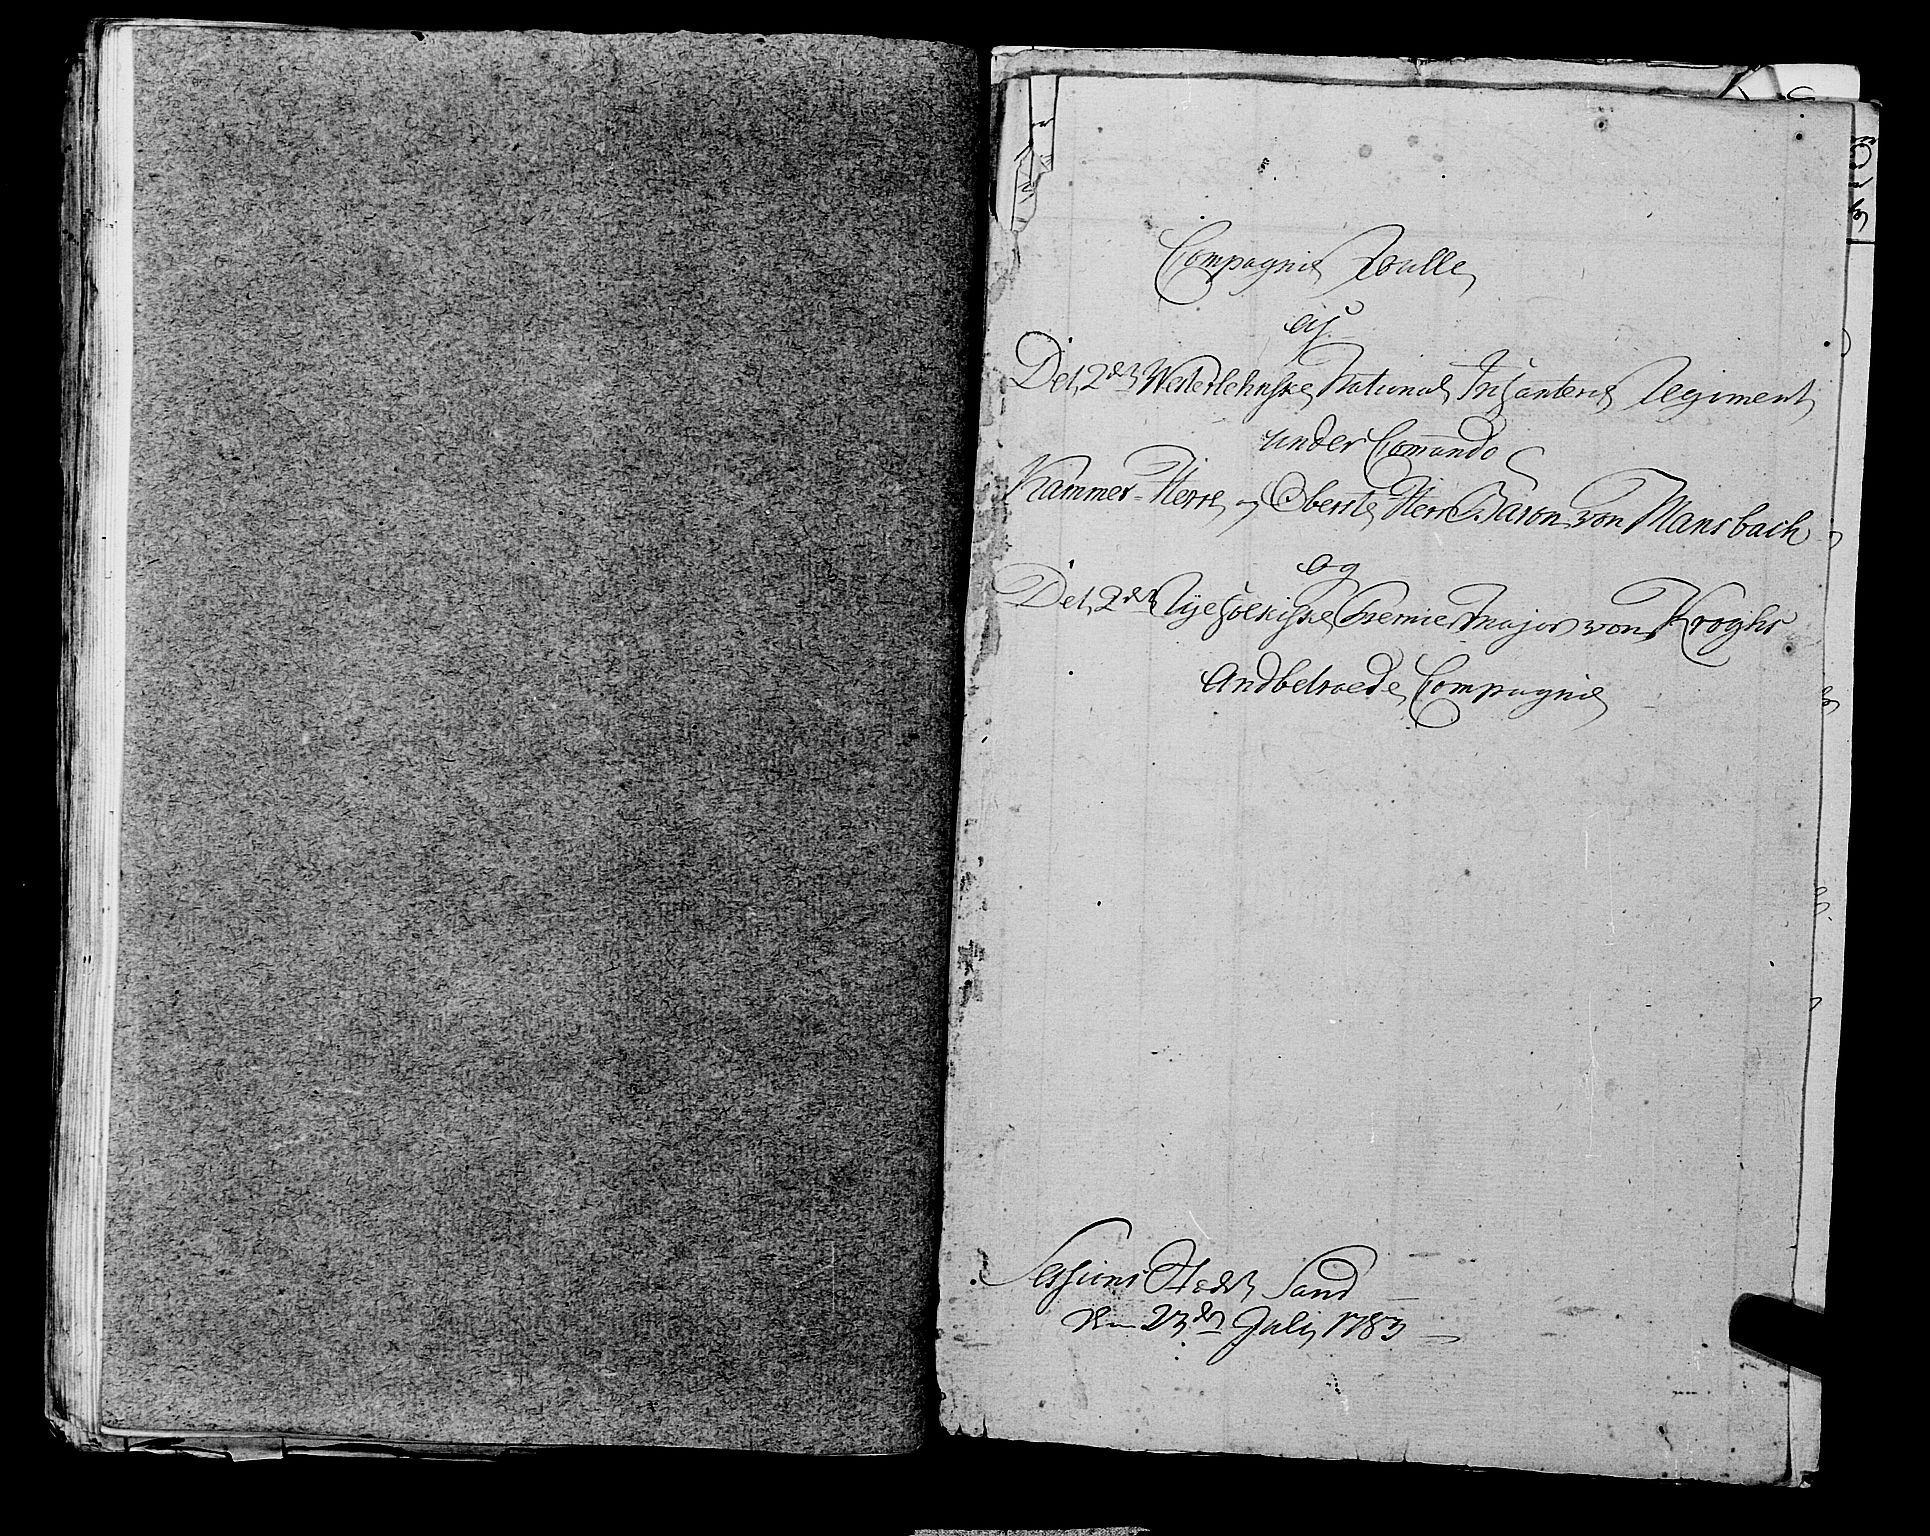 Compagnie Rulle
af
Det 2den Westerlehnske National Infanterie Regiment
under Comando
Kammer-Herre og Oberste Herr Baron von Mansbach
og
Det 2den Ryefylkiske Premier Major von Kroghs
Andbetroede Compagnie
Sessions Stædet Sand
den 23de July 1783